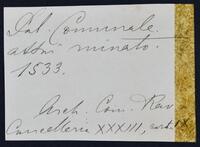 Pal. Comunale.
attri minato.
1533.
Arch. Com. Rav.
Cancelleria XXXIII, carta IX